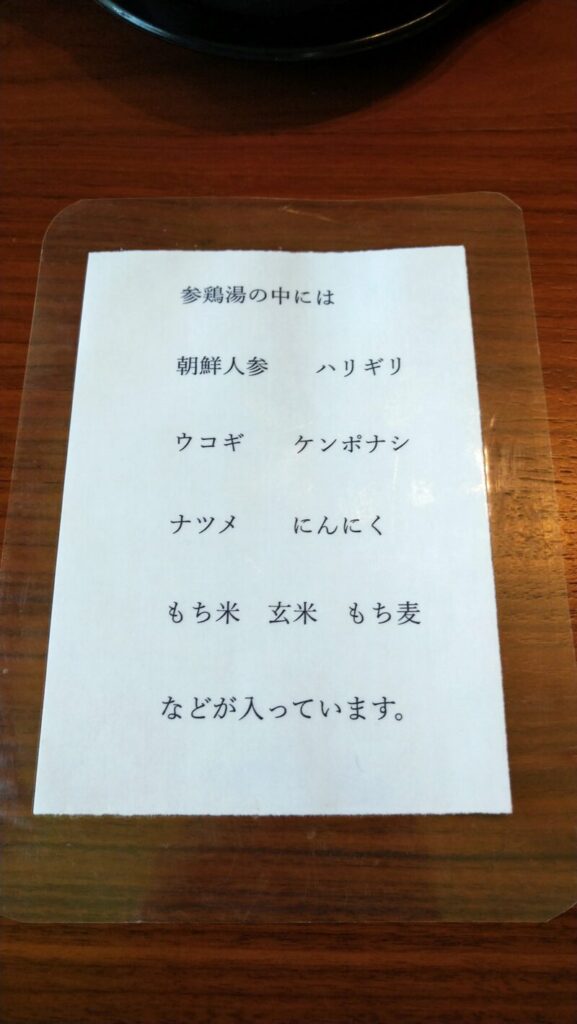 参鶏湯の中には
朝鮮人参　ハリギリ
ウコギ　ケンポナシ
ナツメ　にんにく
もち米　玄米　もち麦
などが入っています。